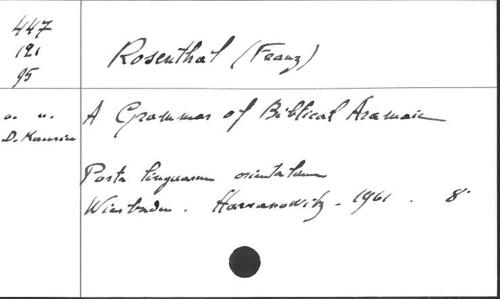 447
121
95
Rosenthal (Franz)
A Grammar of Biblical Aramaic
Porta linguarum orientalium
Wiesbaden. Harrassowitz - 1961. 8°